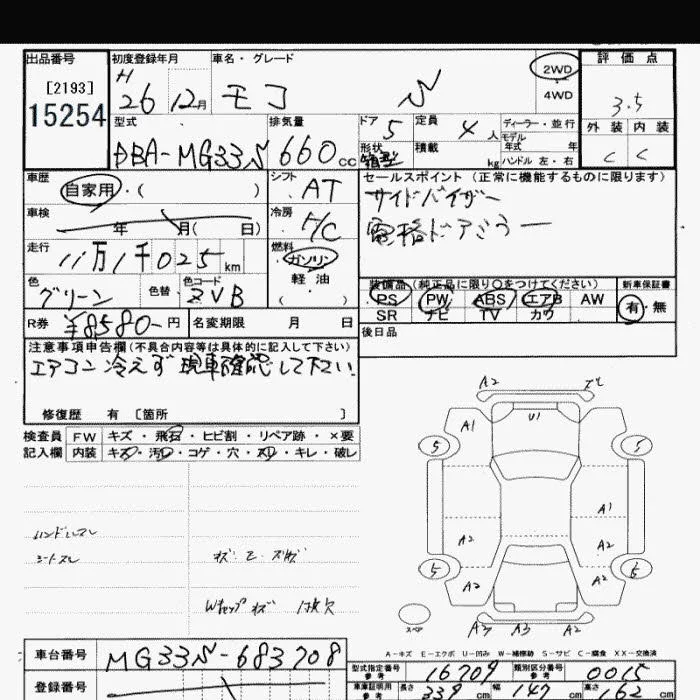 出品番号 初度登録年月 車名・グレード 2WD 評価点
[2193] H 4WD
15254 26 12月 モコ 3.5
型式 排気量 ドア 5 定員 4 人 ディーラー・並行 外装 内装
DBA-MG33S 660cc 形状 箱型 積載 kg モデル年式 年 C C
ハンドル 左・右
車歴 シフト AT セールスポイント(正常に機能するものに限ります)
自家用・( ) サイドバイザー
車検 年 月( 日) 冷房 電格ドアミラー
走行 燃料
11万1千025km ガソリン
色 色替 色コード 軽油 装備品(純正品に限り○をつけてください) 新車保証書
グリーン ZVB ( ) PS PW ABS エアB AW 有・無
SR ナビ TV カワ
R券 ¥8580-円 名変期限 月 日 後日品
注意事項申告欄(不具合内容等は具体的に記入して下さい)
エアコン冷えず 現車確認して下さい
修復歴 有 [箇所 ]
検査員 FW キズ・飛石・ヒビ割・リペア跡・×要
記入欄 内装 キズ・汚れ・コゲ・穴・スレ・キレ・破レ
A2
A1 U1
5 5
A1
A2 A2
5 5
A2 A2
ハンドルスレ
シートスレ
Wキャップ キズ 1枚欠
スペア A3 A2
A-キズ E-エクボ U-凹み W-補修跡 S-サビ C-腐食 XX-交換済
車台番号 MG33S-683708
型式指定番号 参考 16709 類別区分番号 参考 0015
登録番号 車庫証明用 参考 長さ 339 cm 幅 147 cm 高さ 162 cm